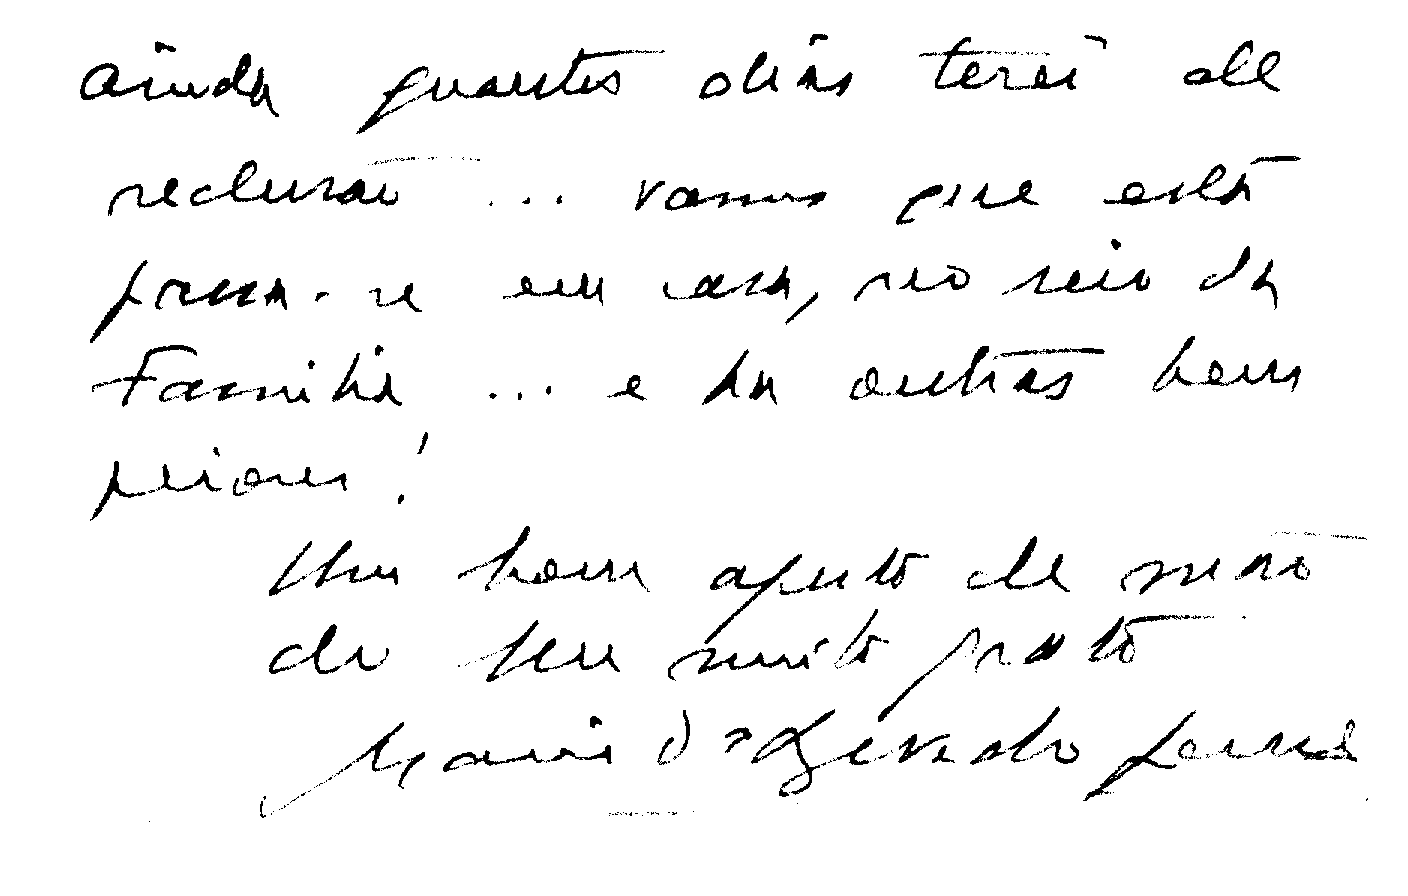 ainda quantos dias terei de
reclusão ... vamos que esta
passa-se em casa, no seio da
Família ... e há outras bem
piores!
Um bom aperto de mão
do seu muito grato
Mario d'Azevedo Gomes